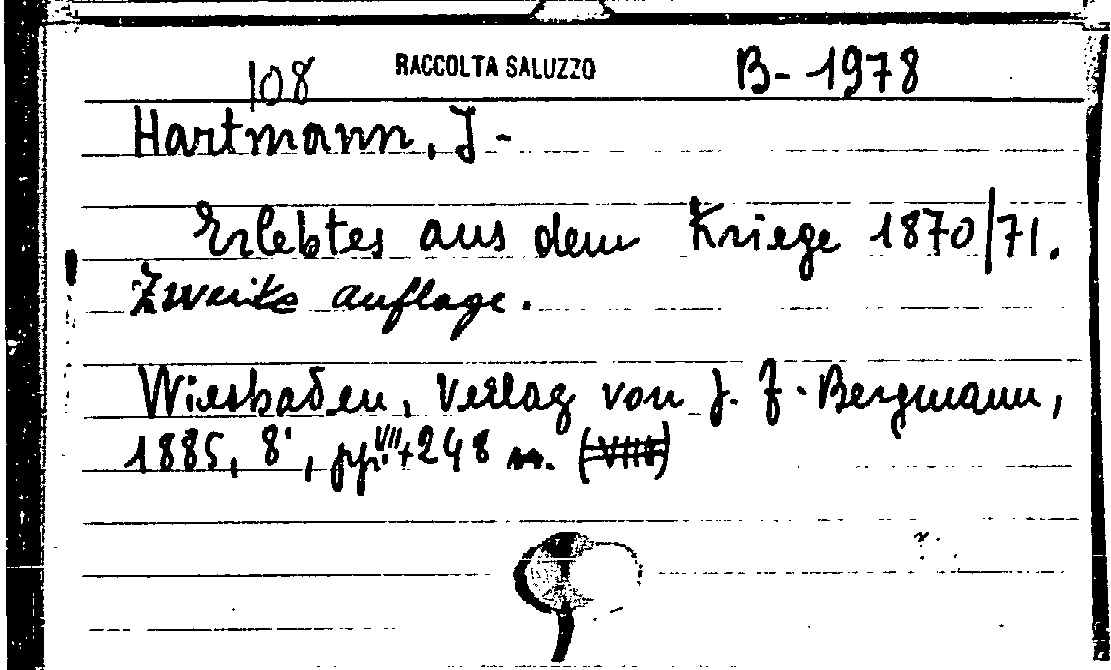 108 RACCOLTA SALUZZO B-1978
Hartmann, J-
Erlebtes aus dem Kriege 1870/71.
Zweite Auflage.
Wiesbaden, Verlag von J. F. Bergmann,
1885, 8°, pp. VII+248 n. (VIII)